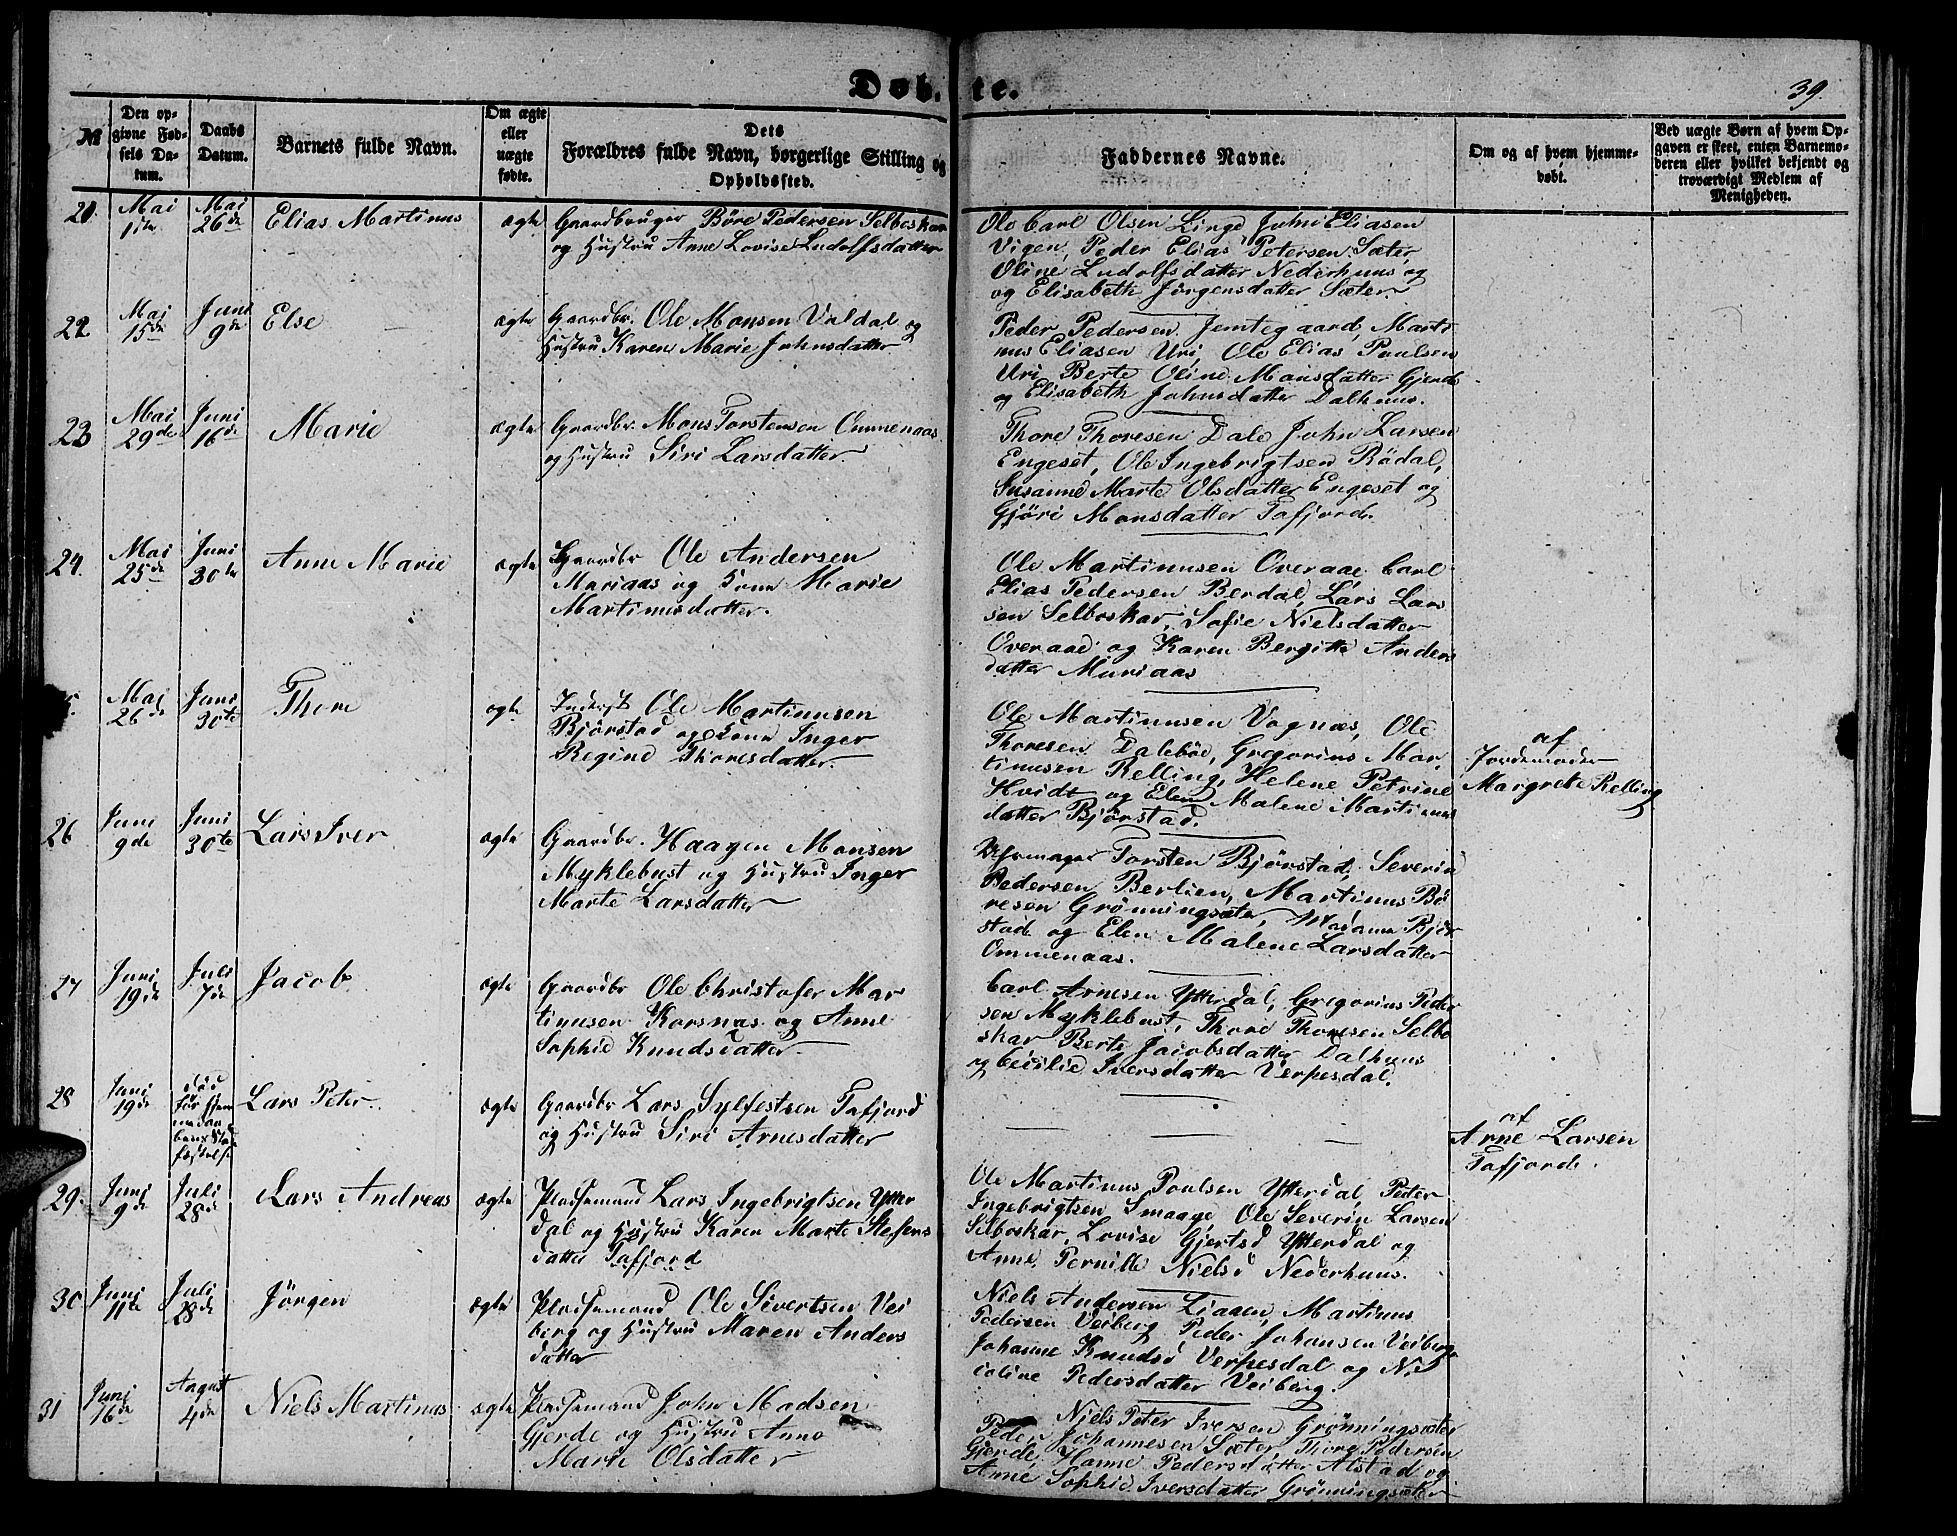 Døb
te.
39.
№
Den op-
givne Fød-
sels Da-
tum.
Daabs
Datum.
Barnets fulde Navn.
Om ægte
eller
uægte
fødte.
Dets
Forældres fulde Navn, borgerlige Stilling og
Opholdssted.
Faddernes Navne.
Om og af hvem hjemme-
døbt.
Ved uægte Børn af hvem Op-
gaven er skeet, enten Barnemo-
deren eller hvilket bekjendt og
troværdigt Medlem af
Menigheden.
21.
Mai
1ste
Mai
26de
Elias Martinus
ægte
Gaardbruger Böre Pedersen Selboskar
og Hustru Anne Lovise Ludolfsdatter
Ole Carl Olsen Linge John Eliasen
Vigen, Peder Elias Petersen Sæter
Oline Ludolfsdatter Nederhuus og
og Elisabeth Jörgensdatter Sæter.
22
Mai
15de
Juni
9de
Else
ægte
Gaardbr. Ole Monsen Valdal og
Hustru Karen Marie Johnsdatter
Peder Pedersen Jemtegaard, Marti
nus Eliasen Uri, Ole Elias Paulsen
Uri, Berte Oline Monsdatter Gjerde
og Elisabeth Johnsdatter Dalhuus.
23
Mai
29de
Juni
16de
Marie
ægte
Gaardbr. Mons Torstensen Ommenaas
og Hustru Siri Larsdatter.
Thore Thoresen Dale John Larsen
Engeset, Ole Ingebrigtsen Rödal,
Susanne Marte Olsdatter Engeset og
Gjöri Monsdatter Tafjord.
24.
Mai
25de
Juni
30te
Anne Marie
ægte
Gaardbr Ole Andersen
Muriaas og Kone Marie
Martinusdatter.
Ole Martinusen Overaae Carl
Elias Pedersen Berdal, Lars Lars
sen Selboskar, Sofie Nielsdatter
Overaae og Karen Bergitte Anders
datter Muriaas
5.
Mai
26de
Juni
30te
Thore
ægte
Inderst Ole Martinusen
Bjørstad og Kone Inger
Regine Thoresdatter.
Ole Martinusen Vognæs, Ole
Thoresen Dalebøe, Gregorius Mar,
tinusen Relling, Helene Petrine
Hvidt og Elen Malene Martinus
datter Bjørstad.
af
Jordemoder
Margrete Relling
26
Juni
9de
Juni
30te
Lars Iver
ægte
Gaardbr. Haagen Monsen
Myklebust og Hustru Inger
Marte Larsdatter
Uhrmager Torsten Bjørstad, Severin
Pedersen Berlien, Martinus Bö
resen Grönningsæter, Madame Bjør
stad og Elen Malene Larsdatter
Ommenaas.
27
Juni
19de
Juli
7de
Jacob
ægte
Gaardbr Ole Christofer Mar
tinusen Korsnæs og Anne
Sophie Knudsdatter.
Carl Arnesen Ytterdal, Gregorius Peder
sen Myklebust, Thore Thoresen Selbo
skar Berte Jacobsdatter Dalhuus
og Cecilie Iversdatter Verpesdal.
28
Juni
19de
död
för hjem
medaa
bens Stad
fæstelse
Lars Peter.
ægte
Gaardbr Lars Sylfestsen Tafjord
og Hustru Siri Arnesdatter
af
Arne Larsen
Tafjord.
29.
Juni
9de
Juli
28de
Lars Andreas
ægte
Pladsemand Lars Ingebrigtsen Ytter
dal og Hustru Karen Marte Stefens
datter Tafjord
Ole Martinus Poulsen Ytterdal, Peter
Ingebrigtsen Smaage, Ole Severin Larsen
Selboskar, Lovise Gjertsd Ytterdal og
Anne Pernille Nielsd Nederhuus.
30
Juni
11te
Juli
28de
Jörgen
ægte
Pladsemand Ole Sivertsen Vei
berg og Hustru Maren Anders
datter
Niels Andersen Liaaen, Martinus
Pedersen Veiberg Peder Johansen Veiberg
Johanne Knudsd Verpesdal og Ni
coline Pedersdatter Veiberg.
31
Juni
16de
August
4de
Niels Martinus
ægte
Pladsemand John Madsen
Gjerde og Hustru Anne
Marte Olsdatter
Niels Peter Iversen Grönningsæter
Peder Johannesen Sæter, Thore Pedersen
Gjerde, Hanne Pedersdatter Alstad og
Anne Sophie Iversdatter Grönningsæter